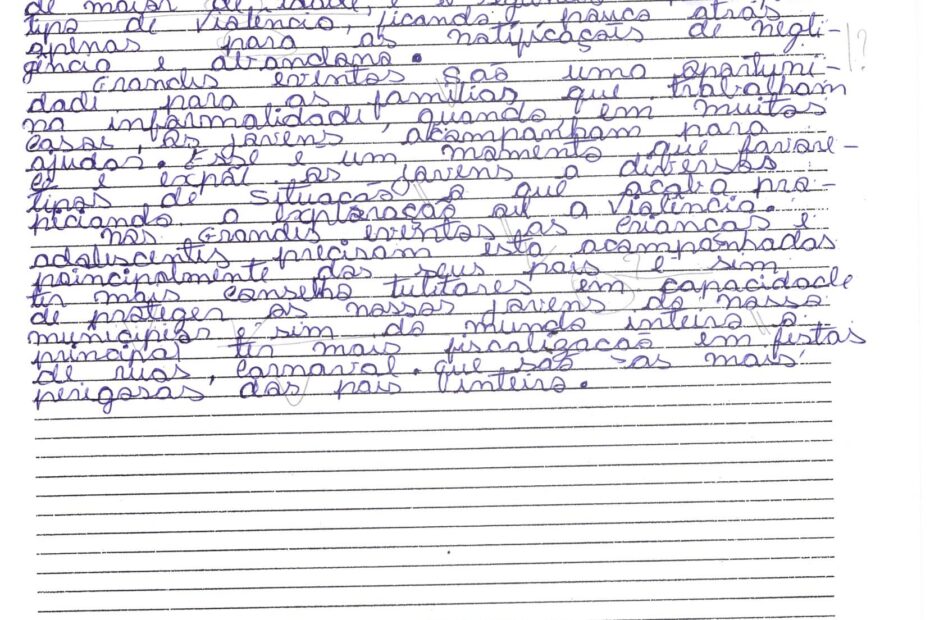 de maior de idade, e o segundo
tipo de violência, ficando pouco atrás
apenas para as notificações de negli-
gência e abandono.
Grandes eventos são uma oportuni-
dade para as famílias que trabalham
na informalidade, quando, em muitos
casos, os jovens acompanham para
ajudar. Esse e um momento que favore-
ce e expõe os jovens a diversos
tipos de situação o que acaba pro-
piciando a exploração ou a violência.
Nos Grandes eventos as crianças e
adolescentes precisam esta acompanhadas
principalmente dos seus pais e sim
ter mais conselho tutitares em capacidade
de proteger os nossos jovens do nosso
municípios e sim do mundo inteiro o
principal ter mais fiscalizacao em festas
de ruas, carnaval. que são as mais
perigosas dos pais inteiro.
!?